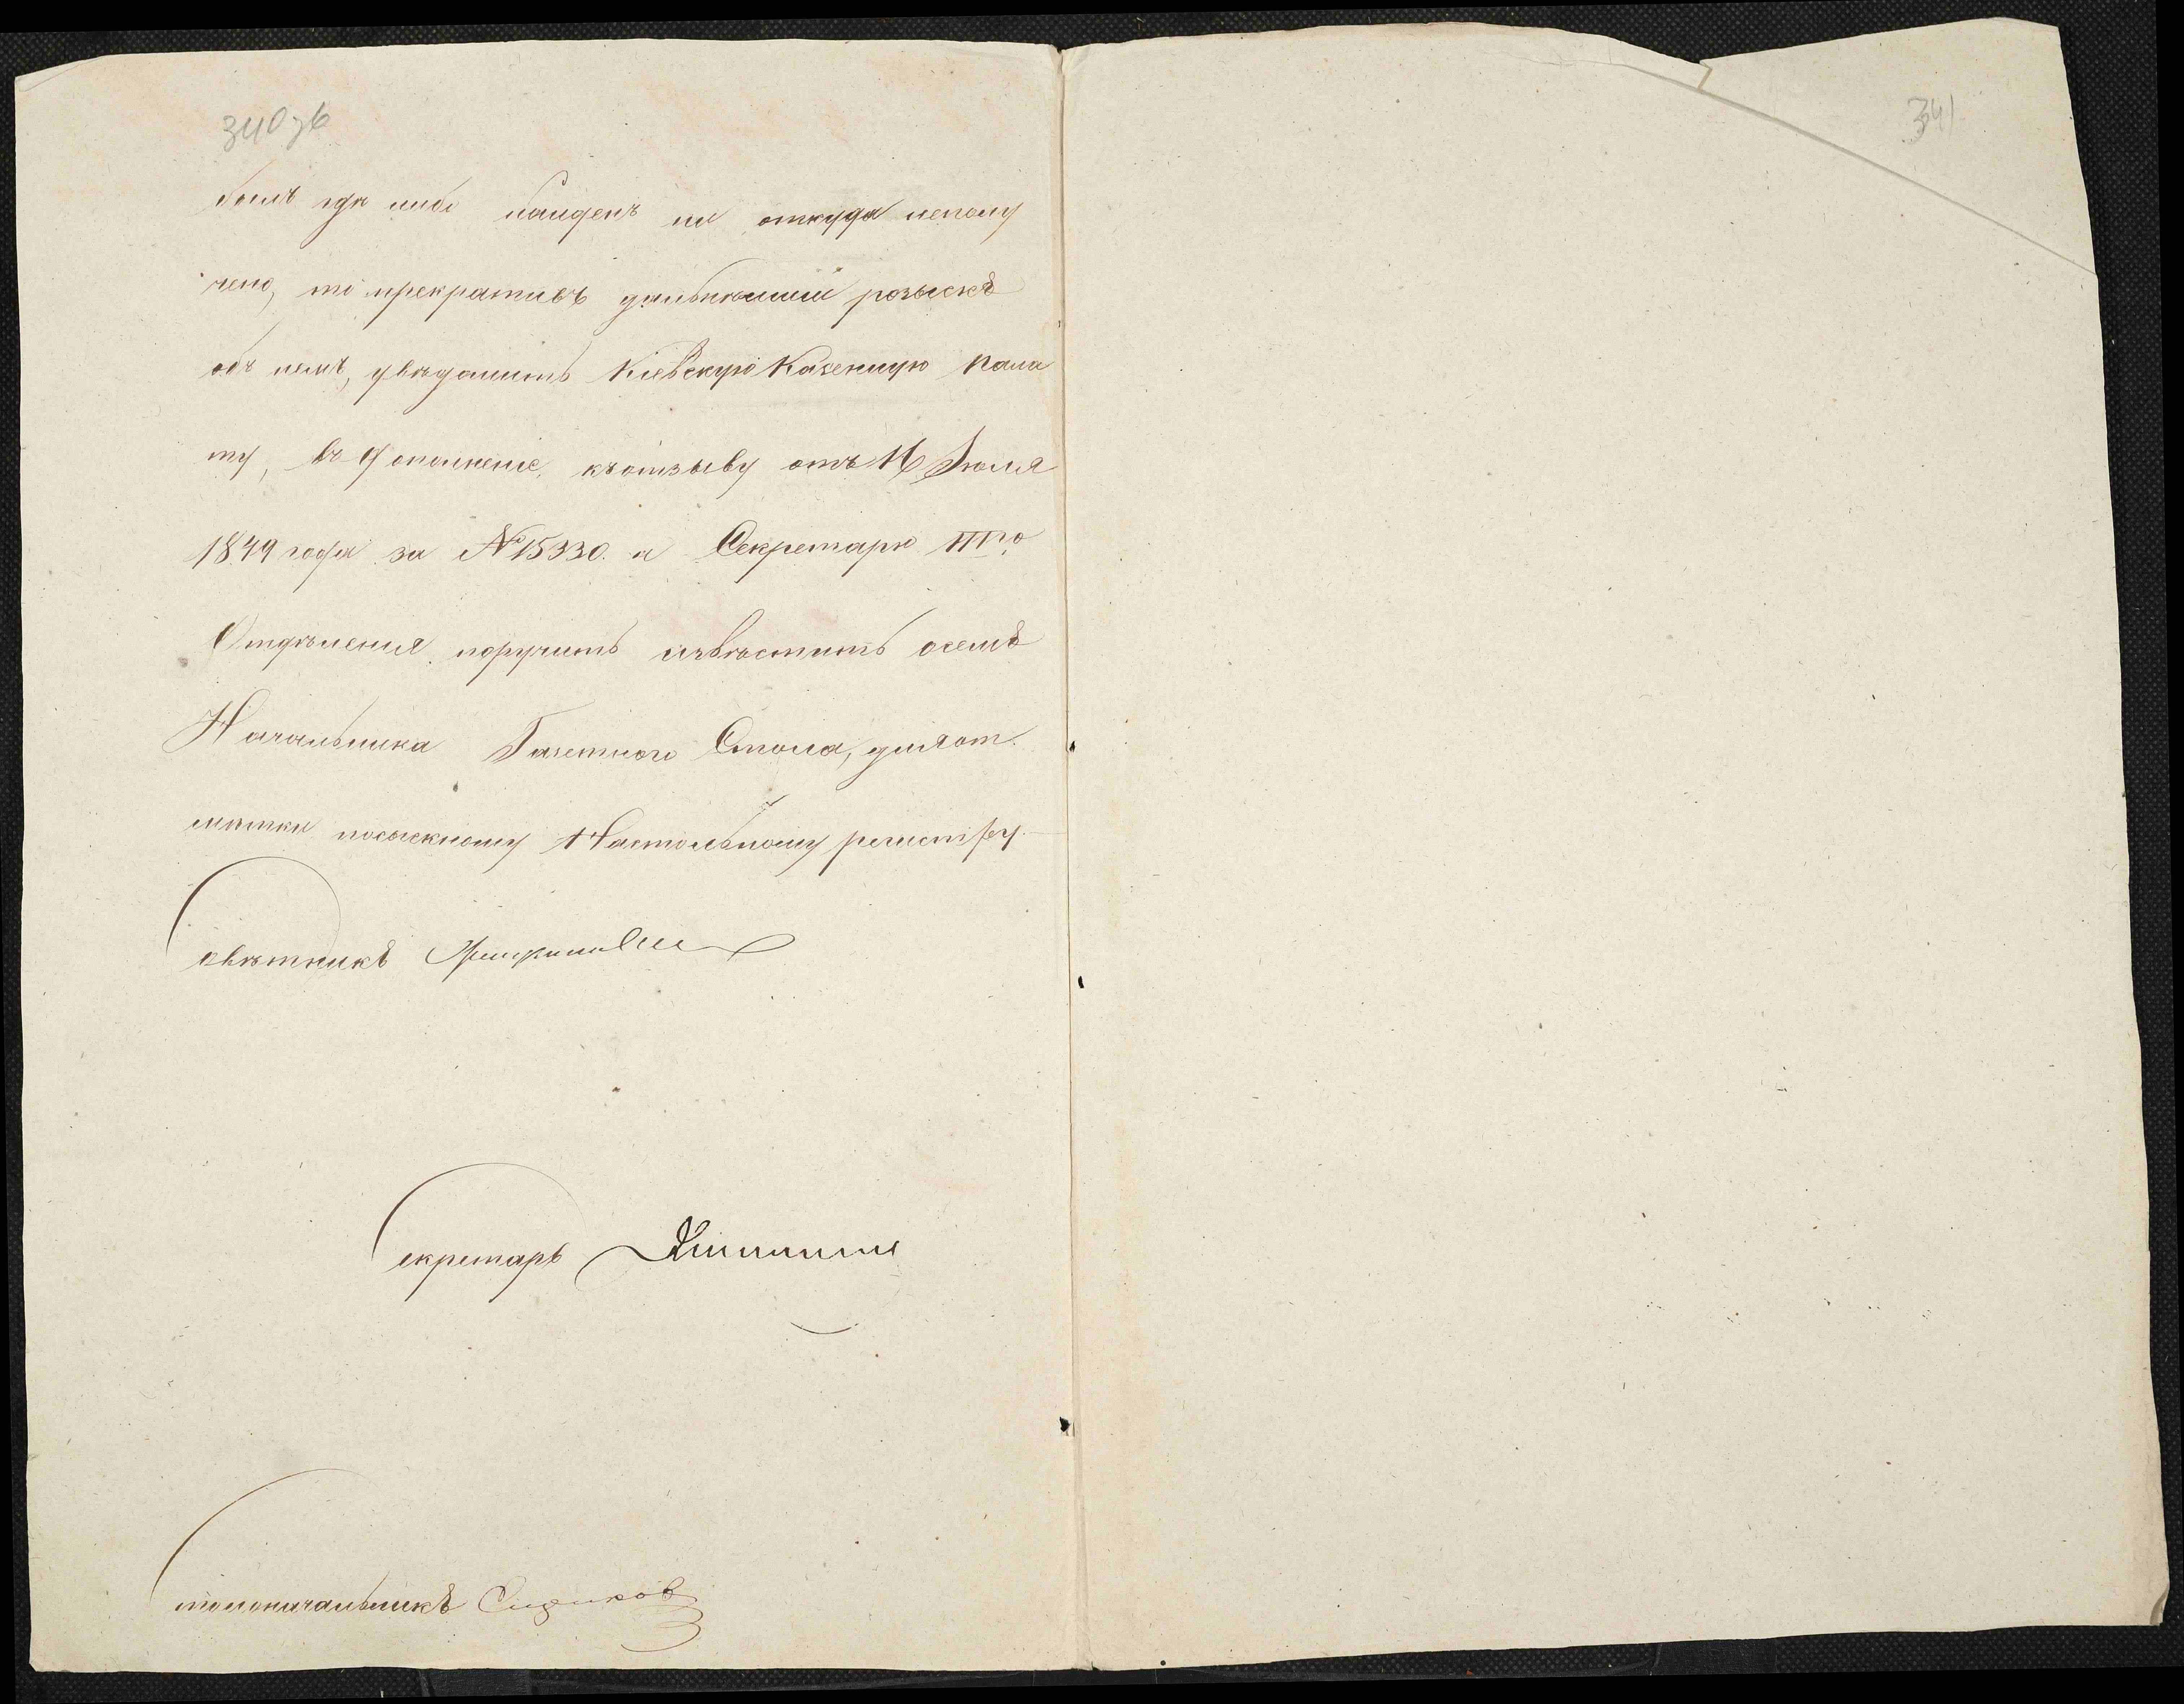 340 зв
341
былъ где либо найденъ ни откуда неполу
чено, то прекративъ дальнѣйшій розыскъ
объ немъ, увѣдомить Кіевскую Казенную Пала
ту, въ дополненіе, къ отзыву отъ 16 Іюля
1849 года за №15330. а Секретарю IIIго
Отдѣленія поручить извѣстить осемъ
Начальника Газетнаго Стола, для от
мѣтки посыскному Настольному регистру.
Совѣтникъ
Секретарь
Столоначальникъ